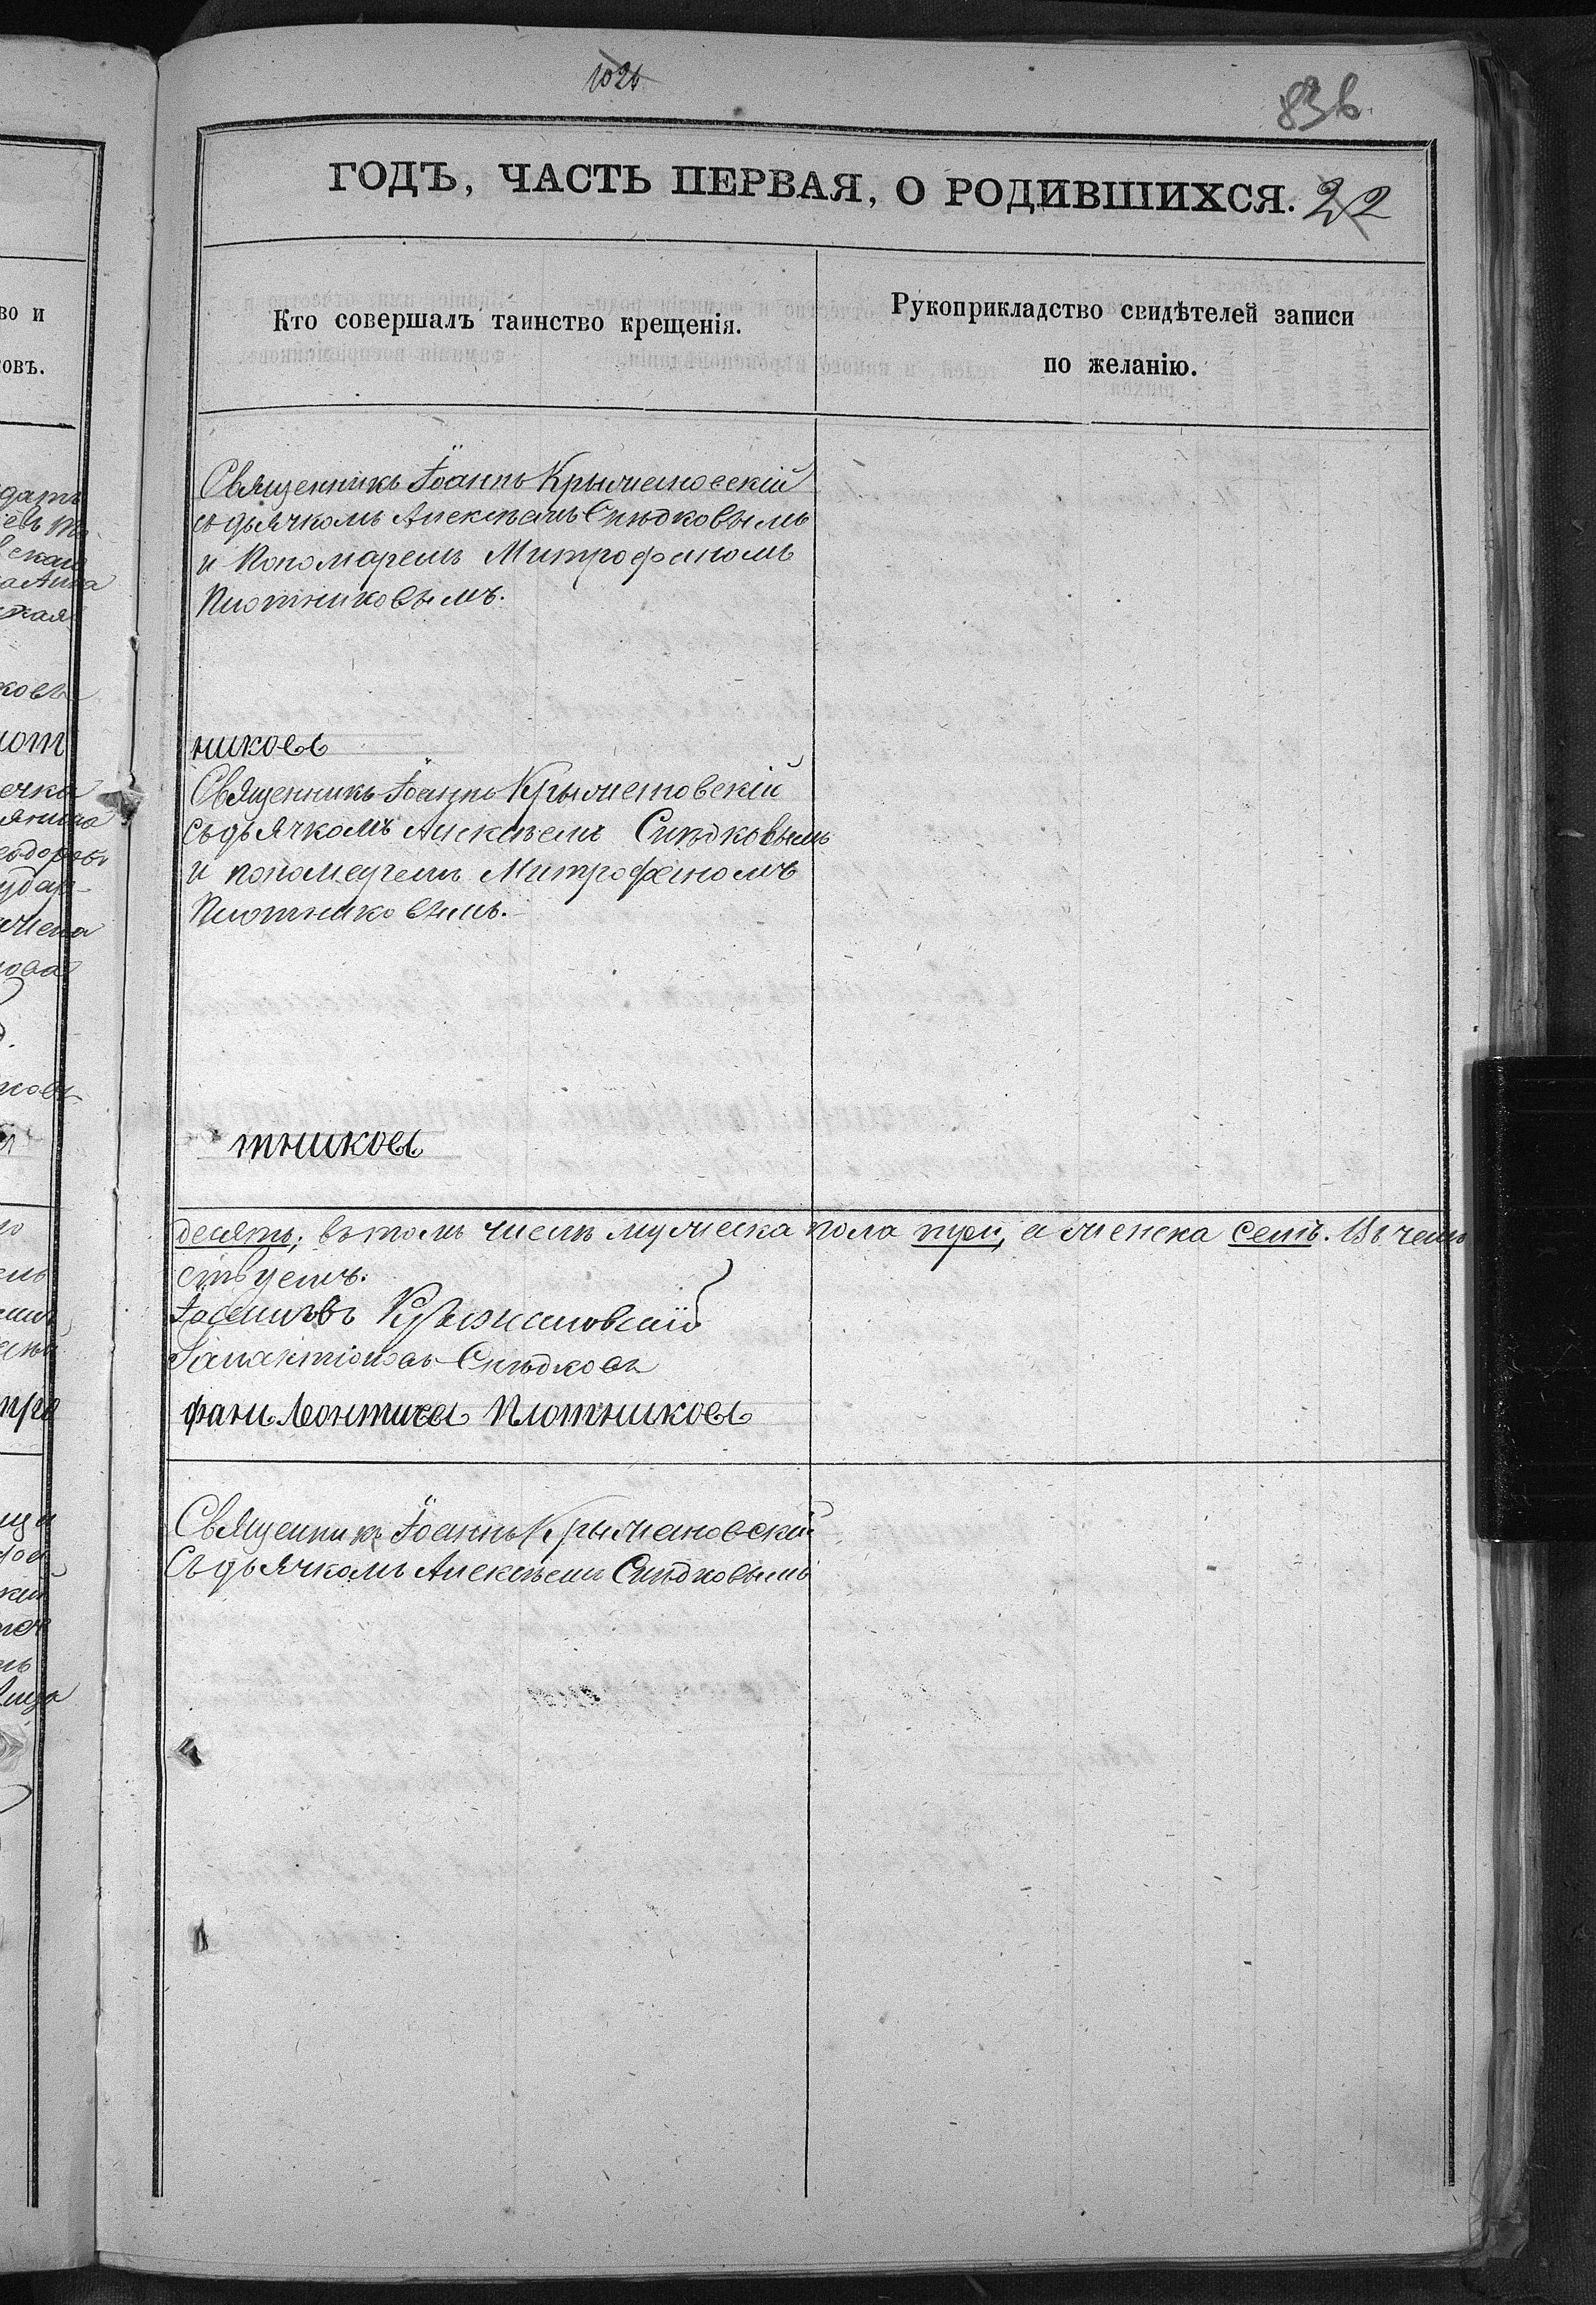 1026
836
ГОДЪ, ЧАСТЬ ПЕРВАЯ, О РОДИВШИХСЯ. 22
Кто совершалъ таинство крещенія.
Рукоприкладство свидѣтелей записи
по желанію.
Священникъ Іоаннъ Крыжановскій
съ дьячкомъ Алексѣемъ Снѣдковымъ
и Пономаремъ Митрофаномъ
Плотниковымъ.
никовъ
Священникъ Іоаннъ Крыжановскій
съ дьячкомъ Алексѣемъ Снѣдковымъ
и пономаремъ Митрофаномъ
Плотниковымъ.
тниковъ
десять; въ томъ числѣ мужеска пола три, а женска семь. Въ чемъ
ствуемъ.
Іоанновъ Крыжановскій
Галактіоновъ Снѣдковъ
фанъ Леонтиевъ Плотниковъ
Священникъ Іоаннъ Крыжановскій
съ дьячкомъ Алексѣемъ Снѣдковымъ